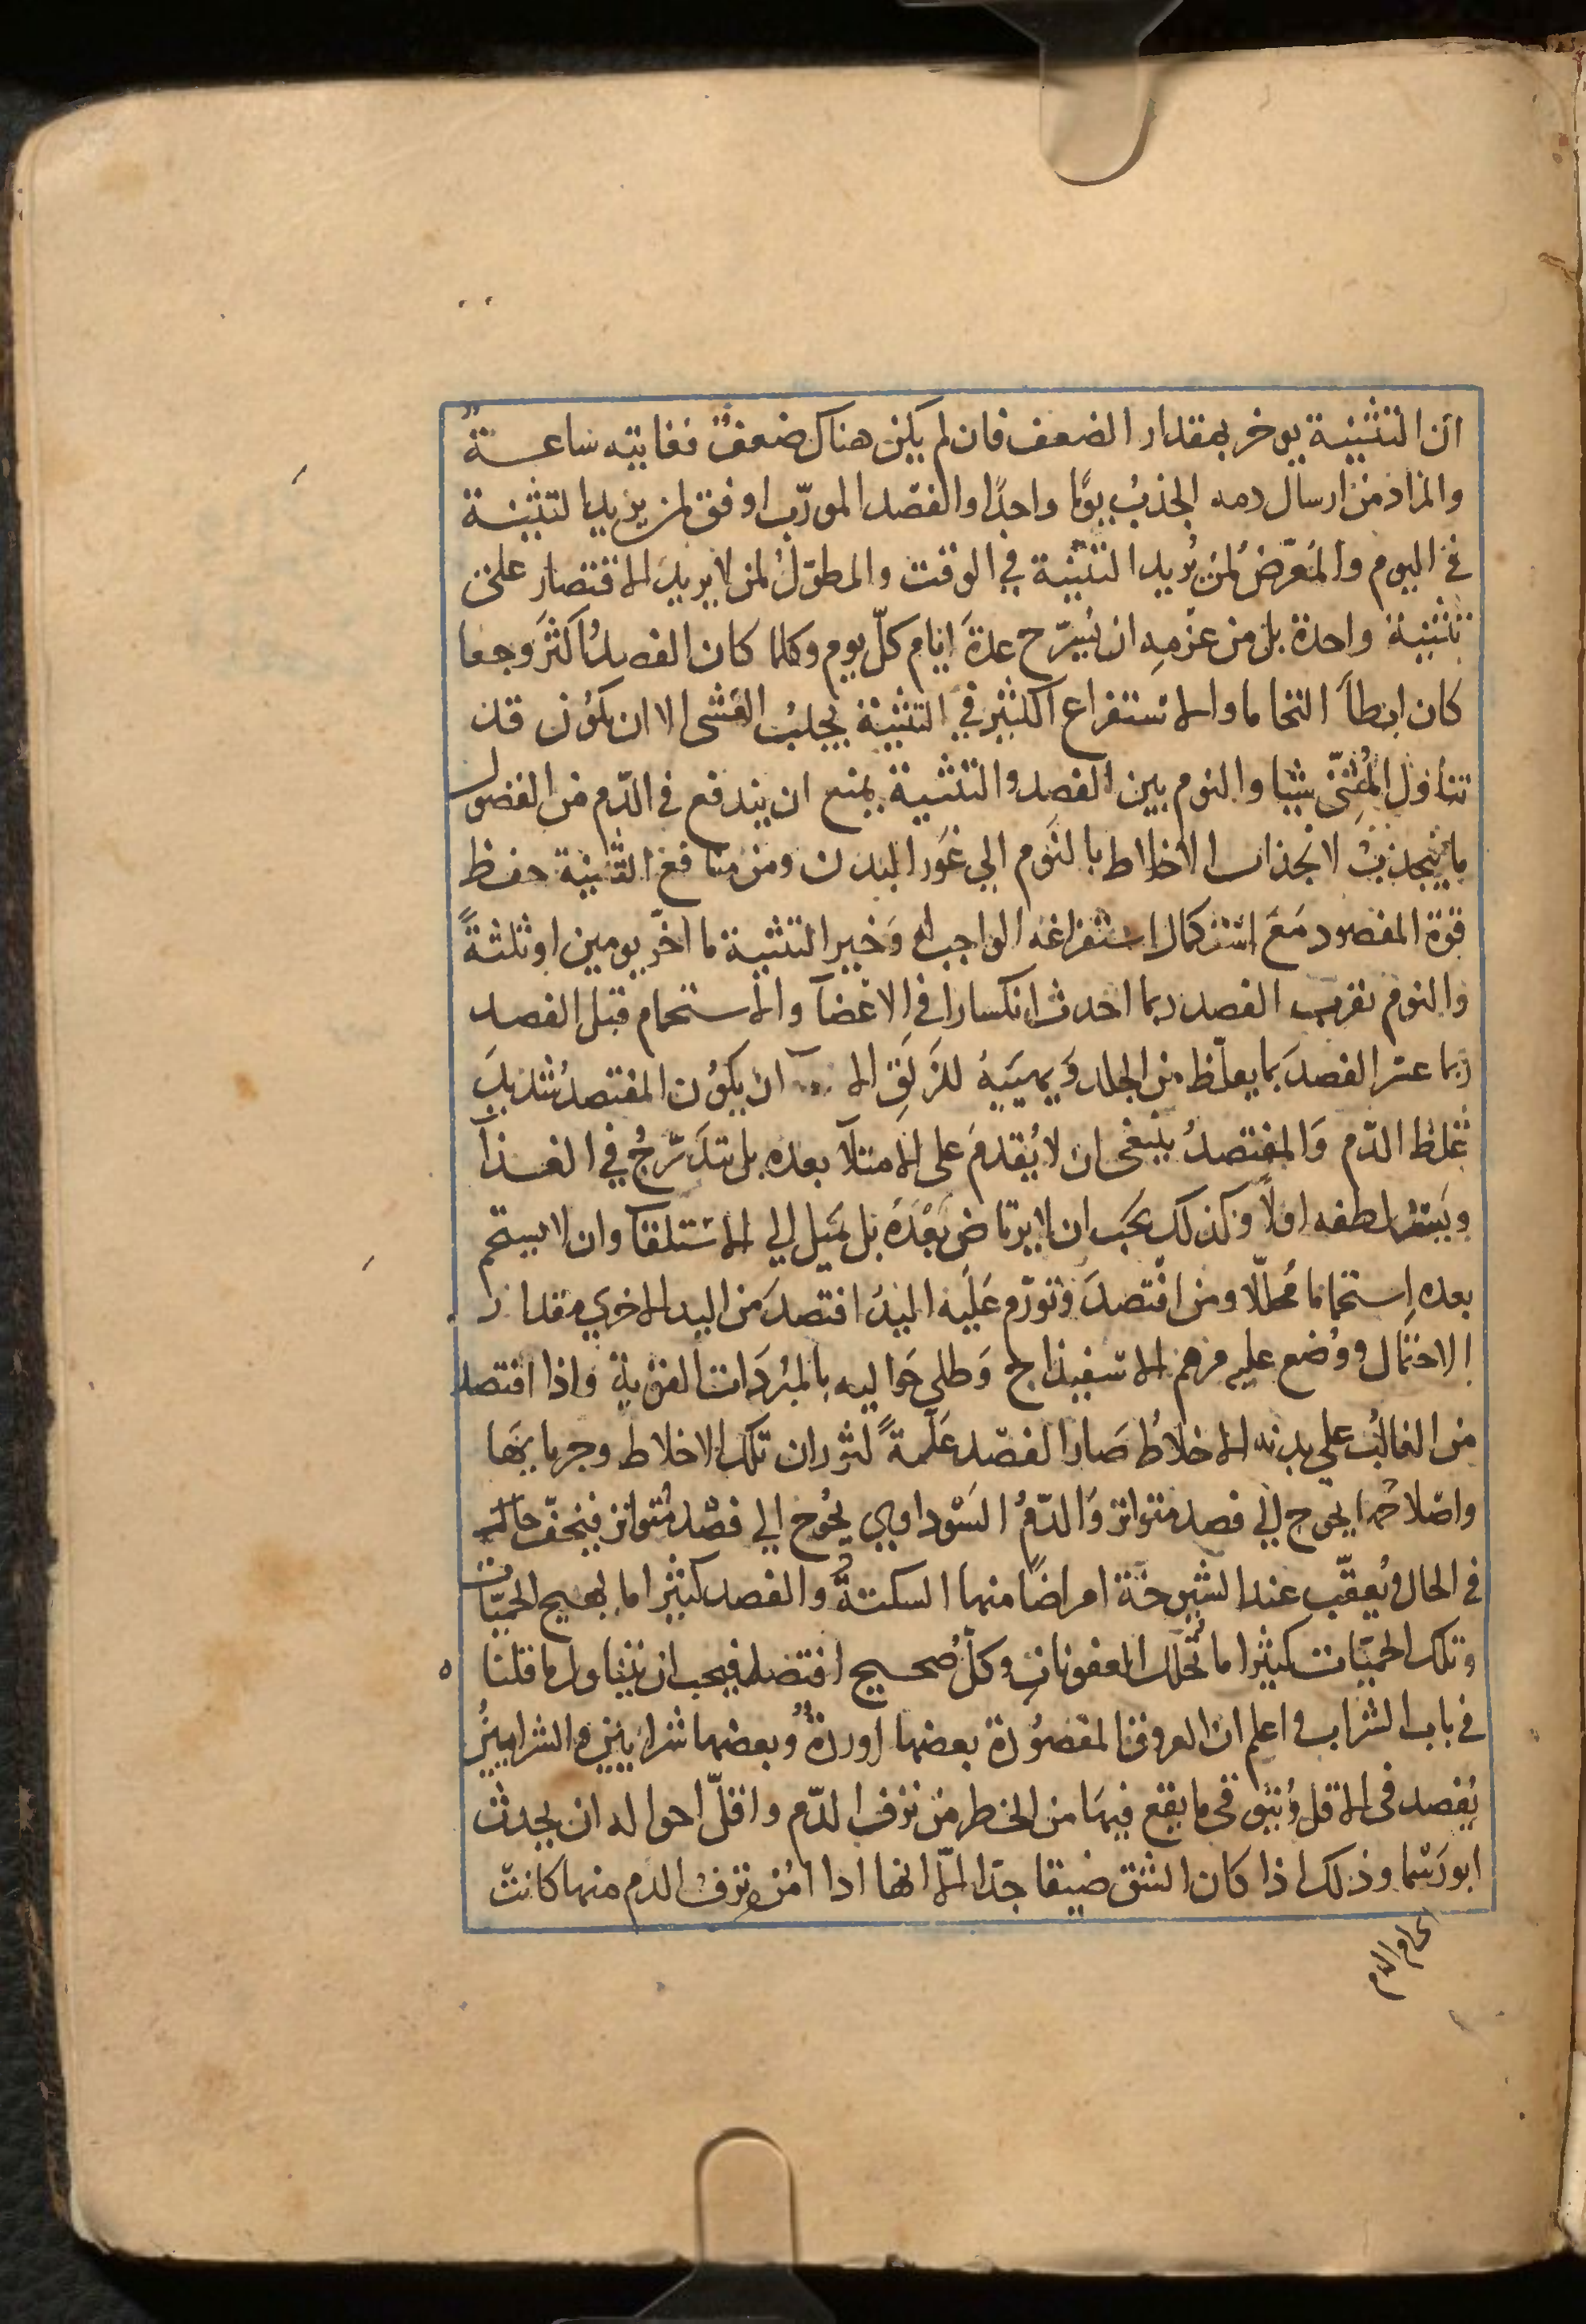 ان التثنية يوخر بمقدار الضعف فان لم يكن هناك ضعفٌ فغايته ساعـــةٌ
والمراد من ارسال دمه الجذبُ يومًا واحدًا والفصد المورّب اوفق لمن يريد التثنية
في اليوم والمُعرّضُ لمن يُريد التثنية في الوقت والمطوّل لمن لا يريد الاقتصار على
تثنية واحدة بل من عزمِه ان يُسَرّح عدةَ ايام كلّ يوم وكلما كان الفصدُ اكثرَ وجعا
كان ابطأَ التحاما والاستفراع الكثير في التثنية يجلبُ الغشى الا ان يكون قد
تناول المُثنّى شيا والنوم بين الفصد والتثنية يمنع ان يندفع في الدّم من الفضول
ما ينجذبُ لانجذاب الاخلاط بالنّوم الي غَور البدن ومن منافع التثنية حفظ
قوّة المفصود مَعَ استكمال استفراغه الواجب له وَخير التثنية ما اخّر يومين او ثلثةً
والنوم بقرب الفصد ربما احدث انكسارا في الاعضآ والاستحمام قبل الفصد
ربما عسر الفصدَ بما يغلّظ من الجلد وَيهيّيه للزَلَقِ الا ان يكوُن المفتصدُ شديدَ
غلظ الدّم وَالمفتصدُ ينبغى ان لا يُقدمَ على الامتلآ بعده بل يتدَرّجُ في الغـــذآ
ويَستلطفه اولًا وكذلك يجَب ان لا يرتاض بَعْدَهُ بل يَميل الي الاستلقآ وان لا يستحم
بعده اِستحماما مُحللًا ومن افتصدَ وتورّم عَليَه اليدُ افتصدَ من اليد الاخري مقدار
الاحتمال ووُضع عليه مرهم الاسفيذاج وَطلي حَواليه بالمبرّدَات القوية واذا افتصد
من الغالبُ علي بدنه الاخلاطُ صَار الفصد عَلّةً لثوران تلك الاخلاط وجريانها
واختلاطها فيحوج الي فصد متواتر وَالدّمُ السَوداوي يُحوج الي فصْد مُتواتر فيخفّ حاله
في الحال ويُعقّب عند الشيوخة امراضًا منها السكتةُ والفصد كثيرا ما يهيج الحميّات
وتلك الحميّات كثيرا ما تُحلل العفونات وكلّ صُحيح افتصد فيجب ان يتناول ما قلنا
في باب الشراب واعلم ان العروق المفصوُدة بعضها اوردةٌ وبعضها شرايينُ والشرايينُ
يُفصد فى الاقل ويُتوقى ما يقع فيهَا من الخطر من نزف الدّم واقلّ احواله ان يحدث
ابورَسْما وذلك اذا كان الشق ضيقا جدّا الّا انها اذا امُن نزف الدم منها كانت